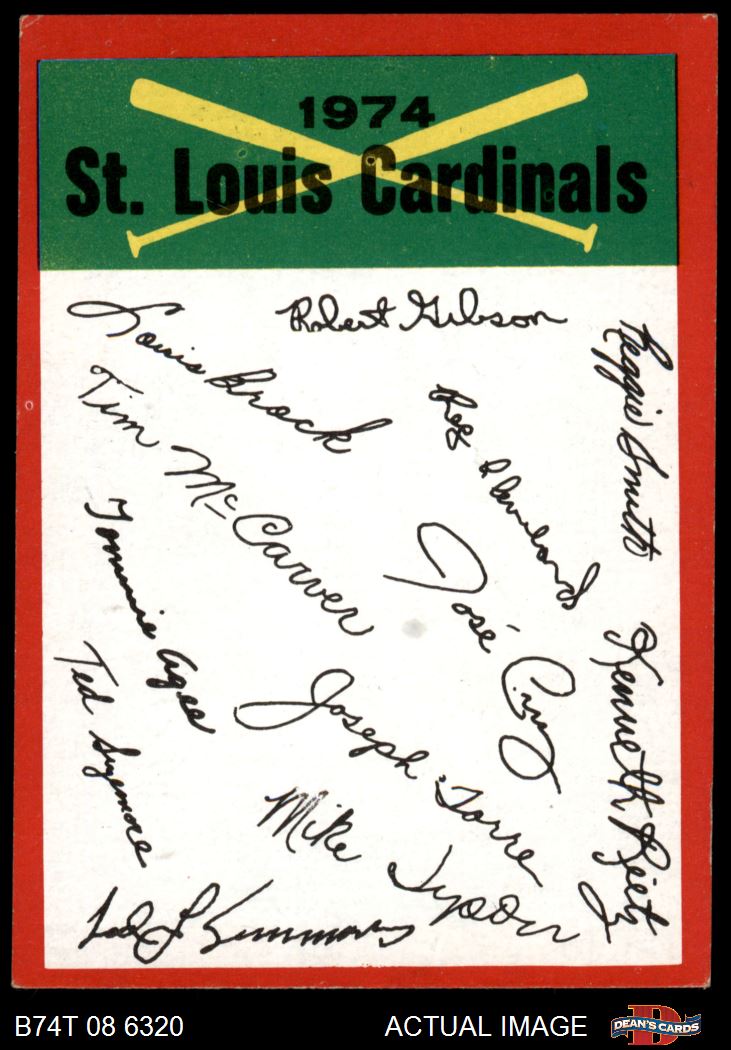 1974
St. Louis Cardinals
Robert Gibson
Louis Brock
Reggie Smith
Tim McCarver
Reg Cleveland
Tommie Agee
José Cruz
Kenneth Reitz
Ted Sizemore
Joseph Torre
Mike Tyson
Ted L Simmons
B74T 08 6320
ACTUAL IMAGE
DEAN'S CARDS